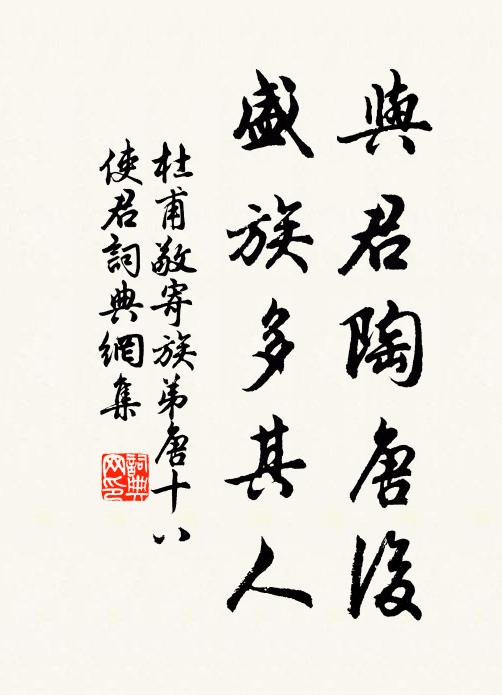 與君陶唐後
盛族多其人
杜甫敬寄族弟唐十八
使君詞典網集
詞典
网印